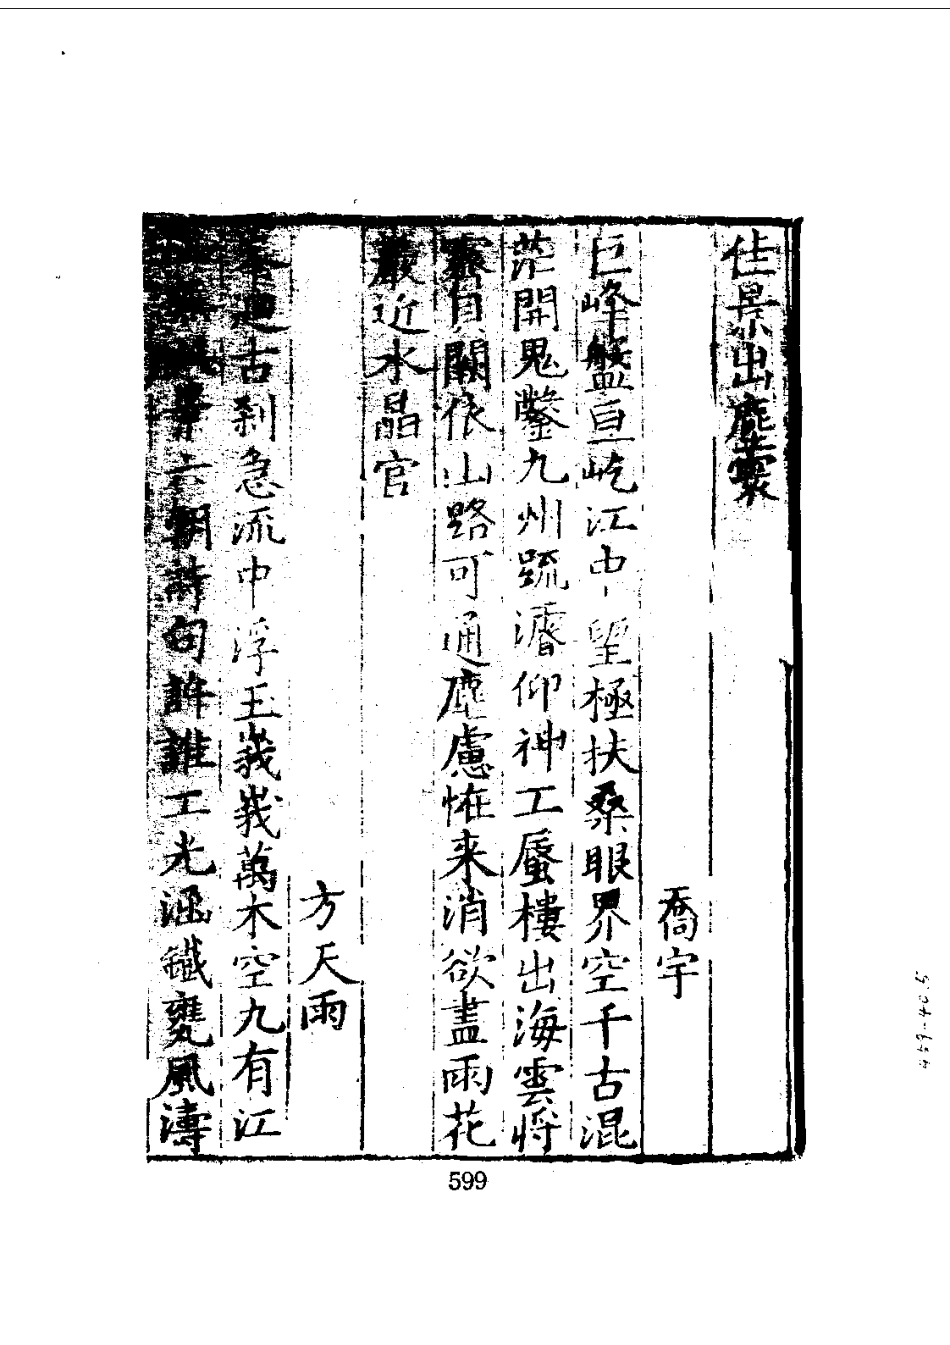 佳景出塵囊
喬宇
巨峰盤亘屹江中望極扶桑眼界空千古混
茫開鬼鑿九州䟽濬仰神工蜃樓出海雲將
貝闕依山路可通塵慮恠来消欲盡雨花
巖近水晶官
方天雨
迴古刹急流中浮玉峩峩萬木空九有江
六朝詩句許誰工光涵鐵甕風濤
599
459-405